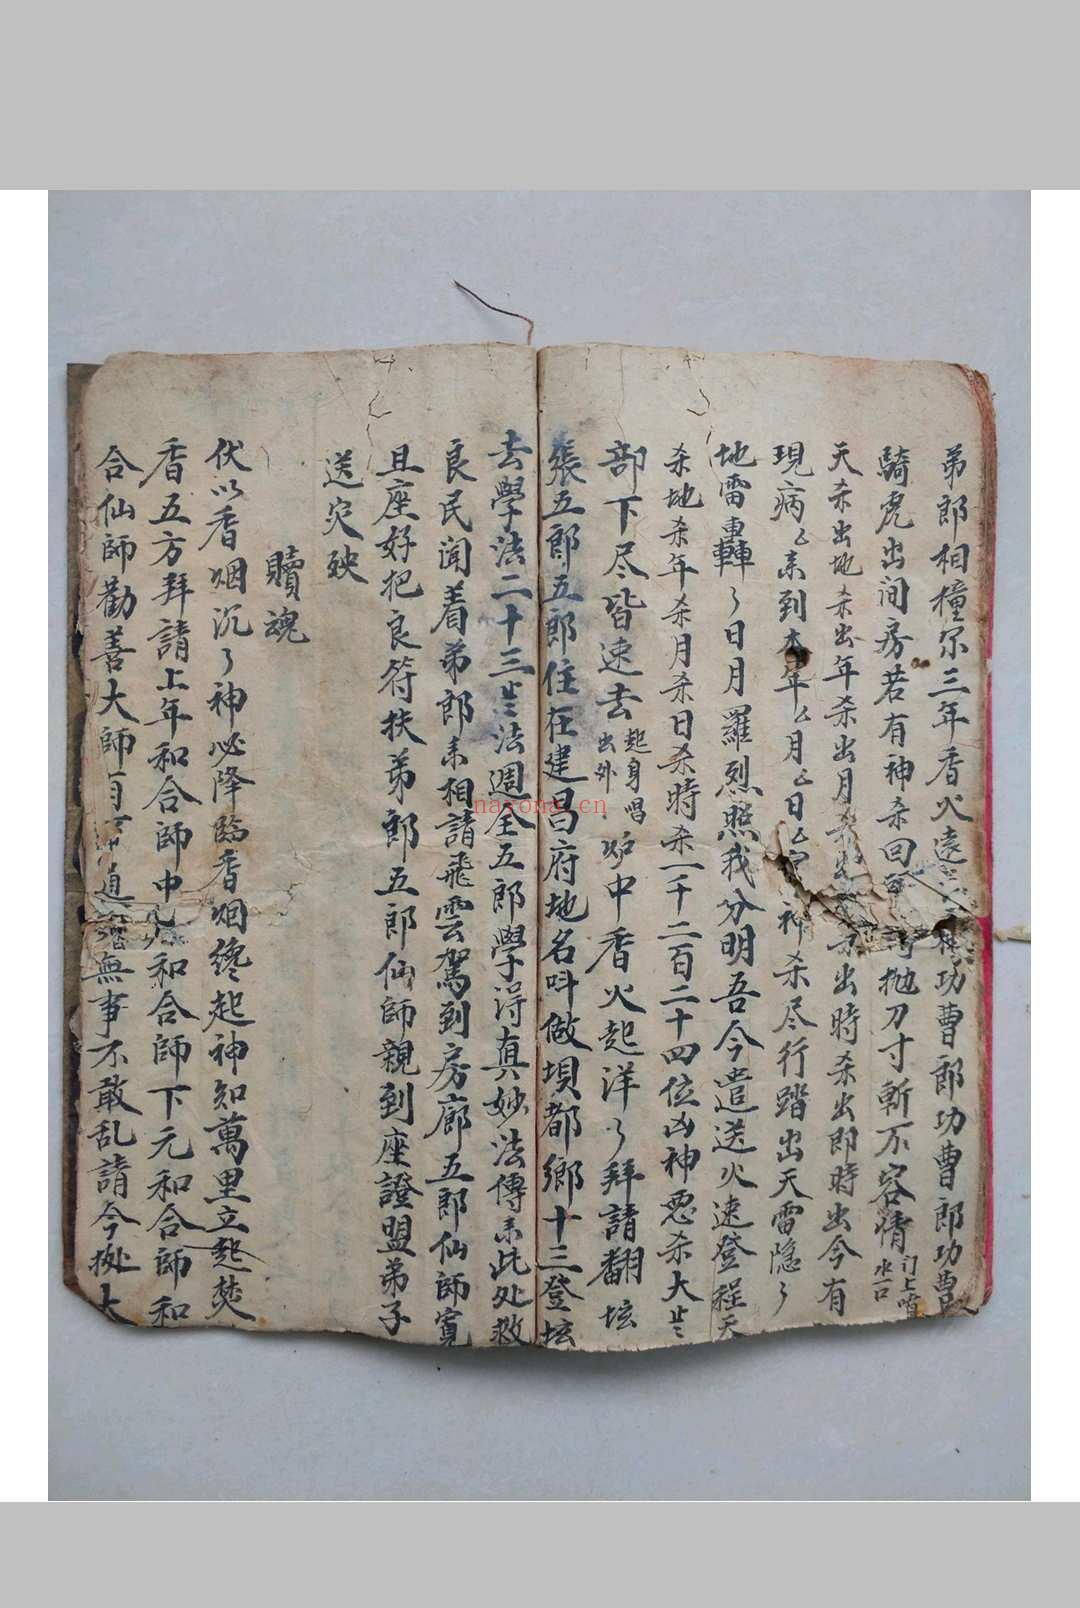 弟郎相撞眾三年香火遠 功曹郎功曹郎功曹
騎虎出间房若有神杀回 抛刀寸斬不容情 门上噴水一口
天杀出地杀出年杀出月杀出 出時杀出即時出今有
現病 到本年 月 日 神杀尽行踏出天雷隐々
地雷轟々日月羅烈照我分明吾今遣送火速登程天
杀地杀年杀月杀日杀時杀一千二百二十四位凶神恶杀大
部下尽皆速去 起身唱出外 炉中香火起洋々拜請翻坛
張五郎五郎住在建昌府地名叫做垻都鄉十三登坛
去學法二十三 法週全五郎學浔真妙法傳来此处救
良民闻着弟郎来相請飛雲駕到房廊五郎仙師寬
且座好把良符扶弟郎五郎仙師親到座證盟弟子
送灾殃
贖魂
伏以香烟沉々神必降臨香烟纔起神知萬里立起焚
香五方拜請上年和合師中元和合師下元和合師和
合仙師勸善大師 道 無事不敢乱請今拠大
nayona.cn